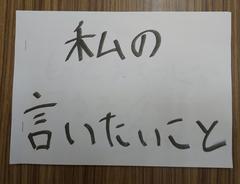 私の
言いたいこと